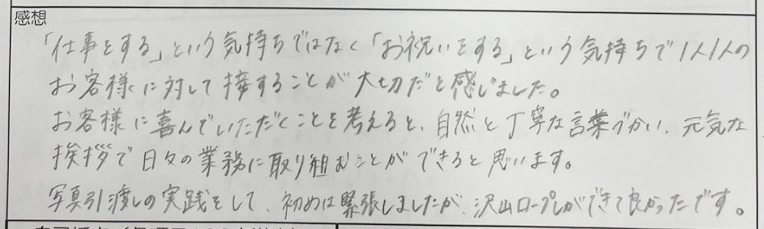 感想
「仕事をする」という気持ちではなく「お祝いをする」という気持ちで1人1人の
お客様に対して接することが大切だと感じました。
お客様に喜んでいただくことを考えると、自然と丁寧な言葉づかい、元気な
挨拶で日々の業務に取り組むことができると思います。
写真引渡しの実践をして、初めは緊張しましたが、沢山ロープレができて良かったです。